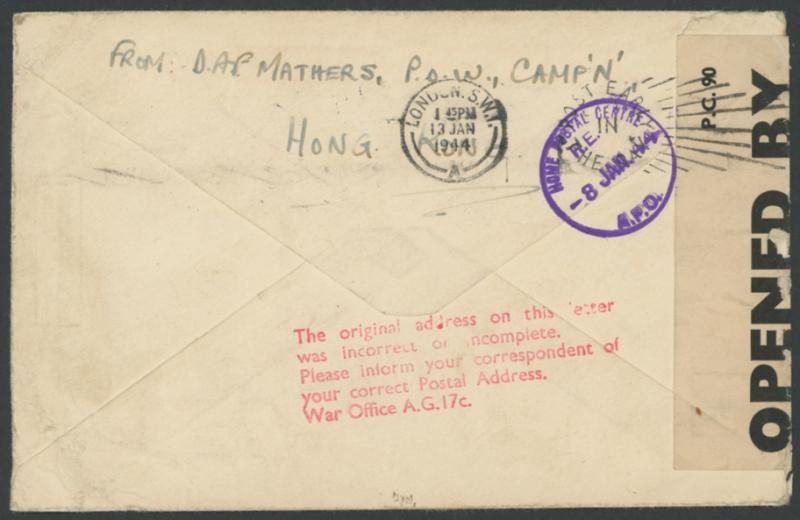 FROM: D.A.P. MATHERS, P.O.W., CAMP 'N'
HONG KONG
LONDON. S.W.1.
1 45PM
13 JAN
1944
A
POST EARLY
IN
THE DAY
HOME POSTAL CENTRE
R.E.
-8 JAN 44
A.P.O.
P.C. 90
OPENED BY
The original address on this letter
was incorrect or incomplete.
Please inform your correspondent of
your correct Postal Address.
War Office A.G.17c.